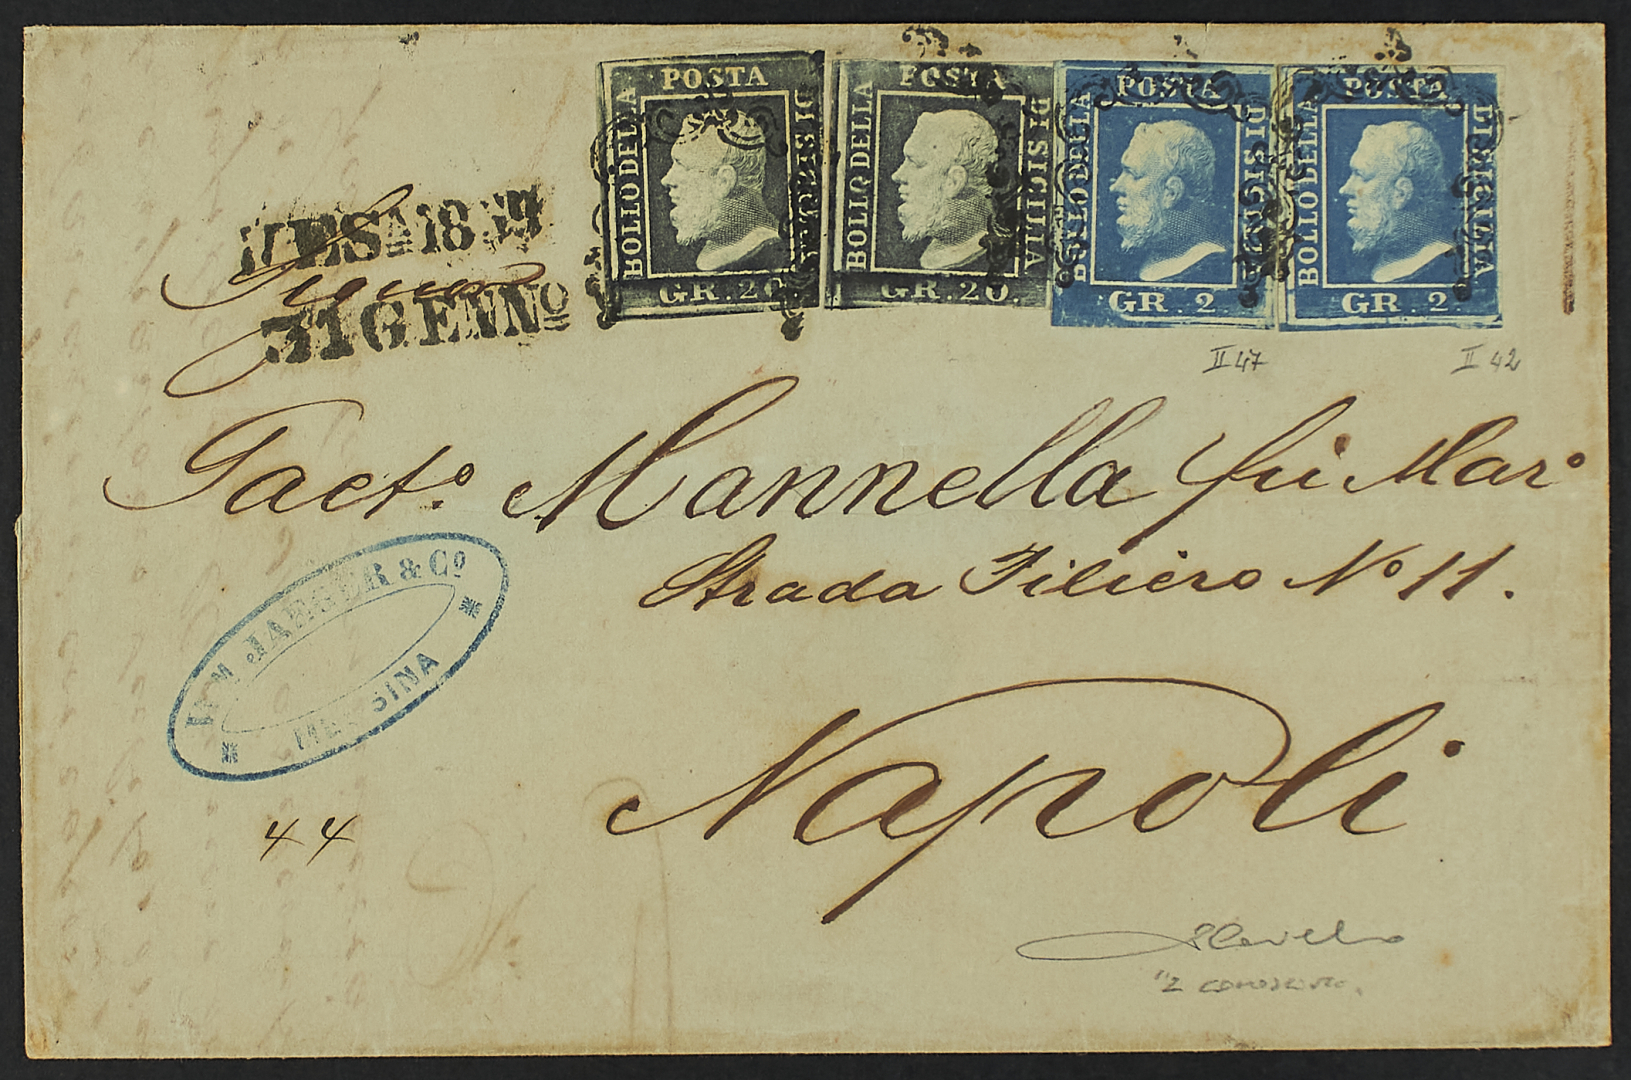 POSTA
BOLLO DELLA
DI SICILIA
GR. 20.
POSTA
BOLLO DELLA
DI SICILIA
GR. 20.
POSTA
BOLLO DELLA
DI SICILIA
GR. 2.
POSTA
BOLLO DELLA
DI SICILIA
GR. 2.
31 GENNO
II 47
II 42
Gaet.o Mannella fu Mar.o
Strada Filiero No 11.
JAEGER & Co
MESSINA
Napoli
44